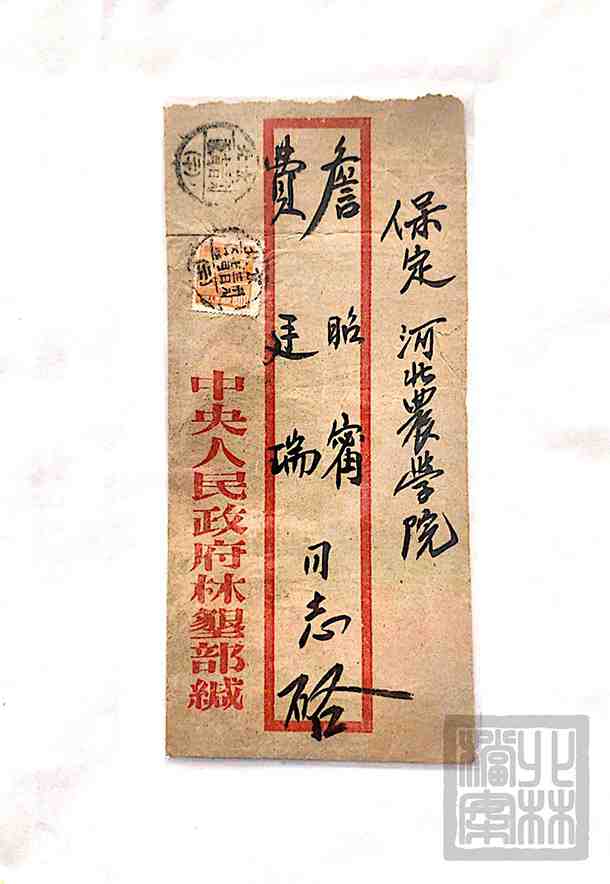 保定 河北農學院
詹昭甯
費廷瑞
同志啓
中央人民政府林墾部緘
北林
檔案